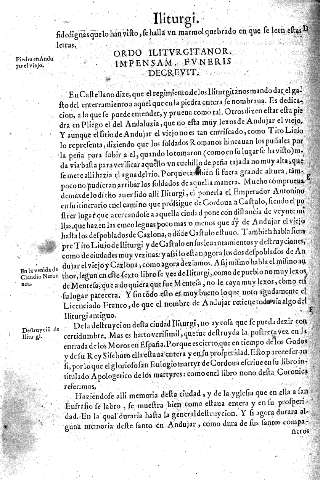 Iliturgi.
fidedignas que lo han visto, se halla vn marmol quebrado en que se leen estas
letras.
Piedra en Andu
jar el viejo.
ORDO ILITVRGITANOR.
IMPENSAM, FVNERIS
DECREVIT.
En Castellano dize, que el regimiento de los Iliturgitanos mando dar el ga-
sto del enterramiento a aquel que en la piedra entera se nombraua. Es dedica-
cion, a lo que se puede entender, y prueua como tal. Otros dizen estar esta pie
dra en Pliego el del Andaluzia, que no esta muy lexos de Andujar el viejo.
Y aunque el sitio de Andujar el viejo no es tan enriscado, como Tito Liuio
lo representa, diziendo que los soldados Romanos hincauan los puñales por
la peña para subir a el, quando lo tomaron (como en su lugar se ha visto)
se mete alli hazia el agua del rio.
poco no pudieran arribar los soldados de aquella manera. Mucho
demas de lo dicho auer sido alli Iliturgi, el ponerla el Emperador Antonino
en su itinerario en el camino que prosigue de Cordoua a Castulo, siendo el po
strer lugar que acercandose a aquella ciudad pone con distancia de veynte mi
llas, que hazen las cinco leguas poco mas o menos que ay de Andujar el viejo
hasta los despoblados de Cazlona, a donde Castulo estuuo. Tambien habla siem
pre Tito Liuio de Iliturgi y de Castulo en sus leuantamientos y destruyciones,
como de ciudades muy vezinas: y assi lo estan agora los dos despoblados de An
dujar el viejo y Cazlona, como agora dezimos.
En la venida de
Claudio Nero.
tor, segun en este sexto libro se vee de Iliturgi, como de pueblo no muy lexos
de Mentesa, que a do quiera que fue Mentesa, no le caya muy lexos, como en
su lugar parecera. Y con todo esto es muy bueno lo que nota agudamente el
Licenciado Franco, de que el nombre de Andujar retiene toda via algo del
Iliturgi antiguo.
Destruyciõ de
Iliturgi.
De la destruycion desta ciudad Iliturgi, no ay cosa que se pueda dezir con
certidumbre. Mas es harto verisimil, que fue destruyda la postrera vez en la
entrada de los Moros en España. Porque es cierto que en tiempo de los Godos
y de su Rey Sisebuto ella estaua entera y en su prosperidad. Esto prosere
si, por lo que el glorioso san Eulogio martyr de Cordoua escriue en su libro in-
titulado Apologetico de los martyres: como en el libro nono desta Coronica
referimos.
Haziendose alli memoria desta ciudad, y de la yglesia que en ella a san
Eufrasio se labro, se muestra bien como estaua entera y en su prosperi-
dad. En la qual duraria hasta la general destruycion. Y si agora durara al-
guna memoria deste santo en Andujar, como dura de sus santos compa-
ñeros